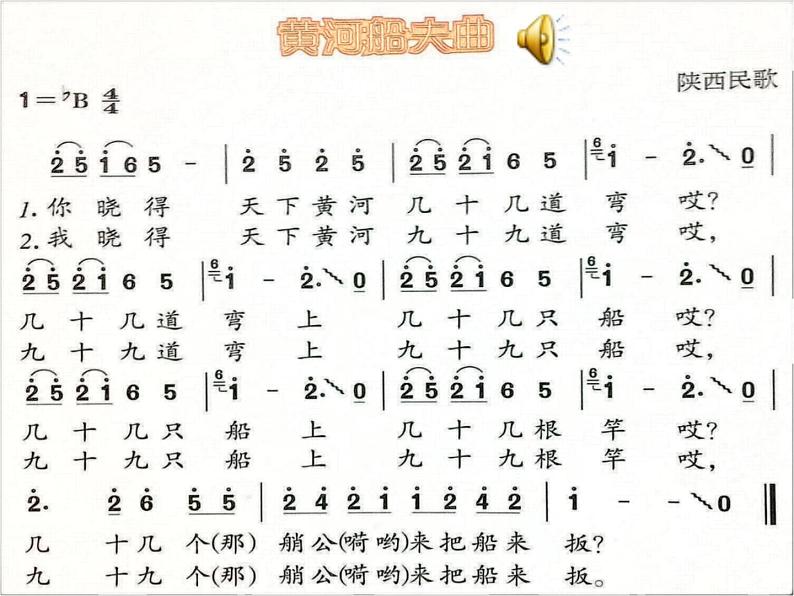 黄河船夫曲
陕西民歌
1=♭B 4/4
2 5 1 6 5 - | 2 5 2 5 | 2 5 2 1 6 5 | 6 1 - 2. 0 |
1.你 晓 得 天 下 黄 河 几 十 几 道 弯 哎?
2.我 晓 得 天 下 黄 河 九 十 九 道 弯 哎,
2 5 2 1 6 5 | 6 1 - 2. 0 | 2 5 2 1 6 5 | 6 1 - 2. 0 |
几 十 几 道 弯 上 几 十 几 只 船 哎?
九 十 九 道 弯 上 九 十 九 只 船 哎,
2 5 2 1 6 5 | 6 1 - 2. 0 | 2 5 2 1 6 5 | 6 1 - 2. 0 |
几 十 几 只 船 上 几 十 几 根 竿 哎?
九 十 九 只 船 上 九 十 九 根 竿 哎,
2. 2 6 5 5 | 2 4 2 1 1 2 4 2 | 1 - - 0 ‖
几 十 几 个(那) 艄 公(嗬 哟)来 把 船 来 扳?
九 十 九 个(那) 艄 公(嗬 哟)来 把 船 来 扳。